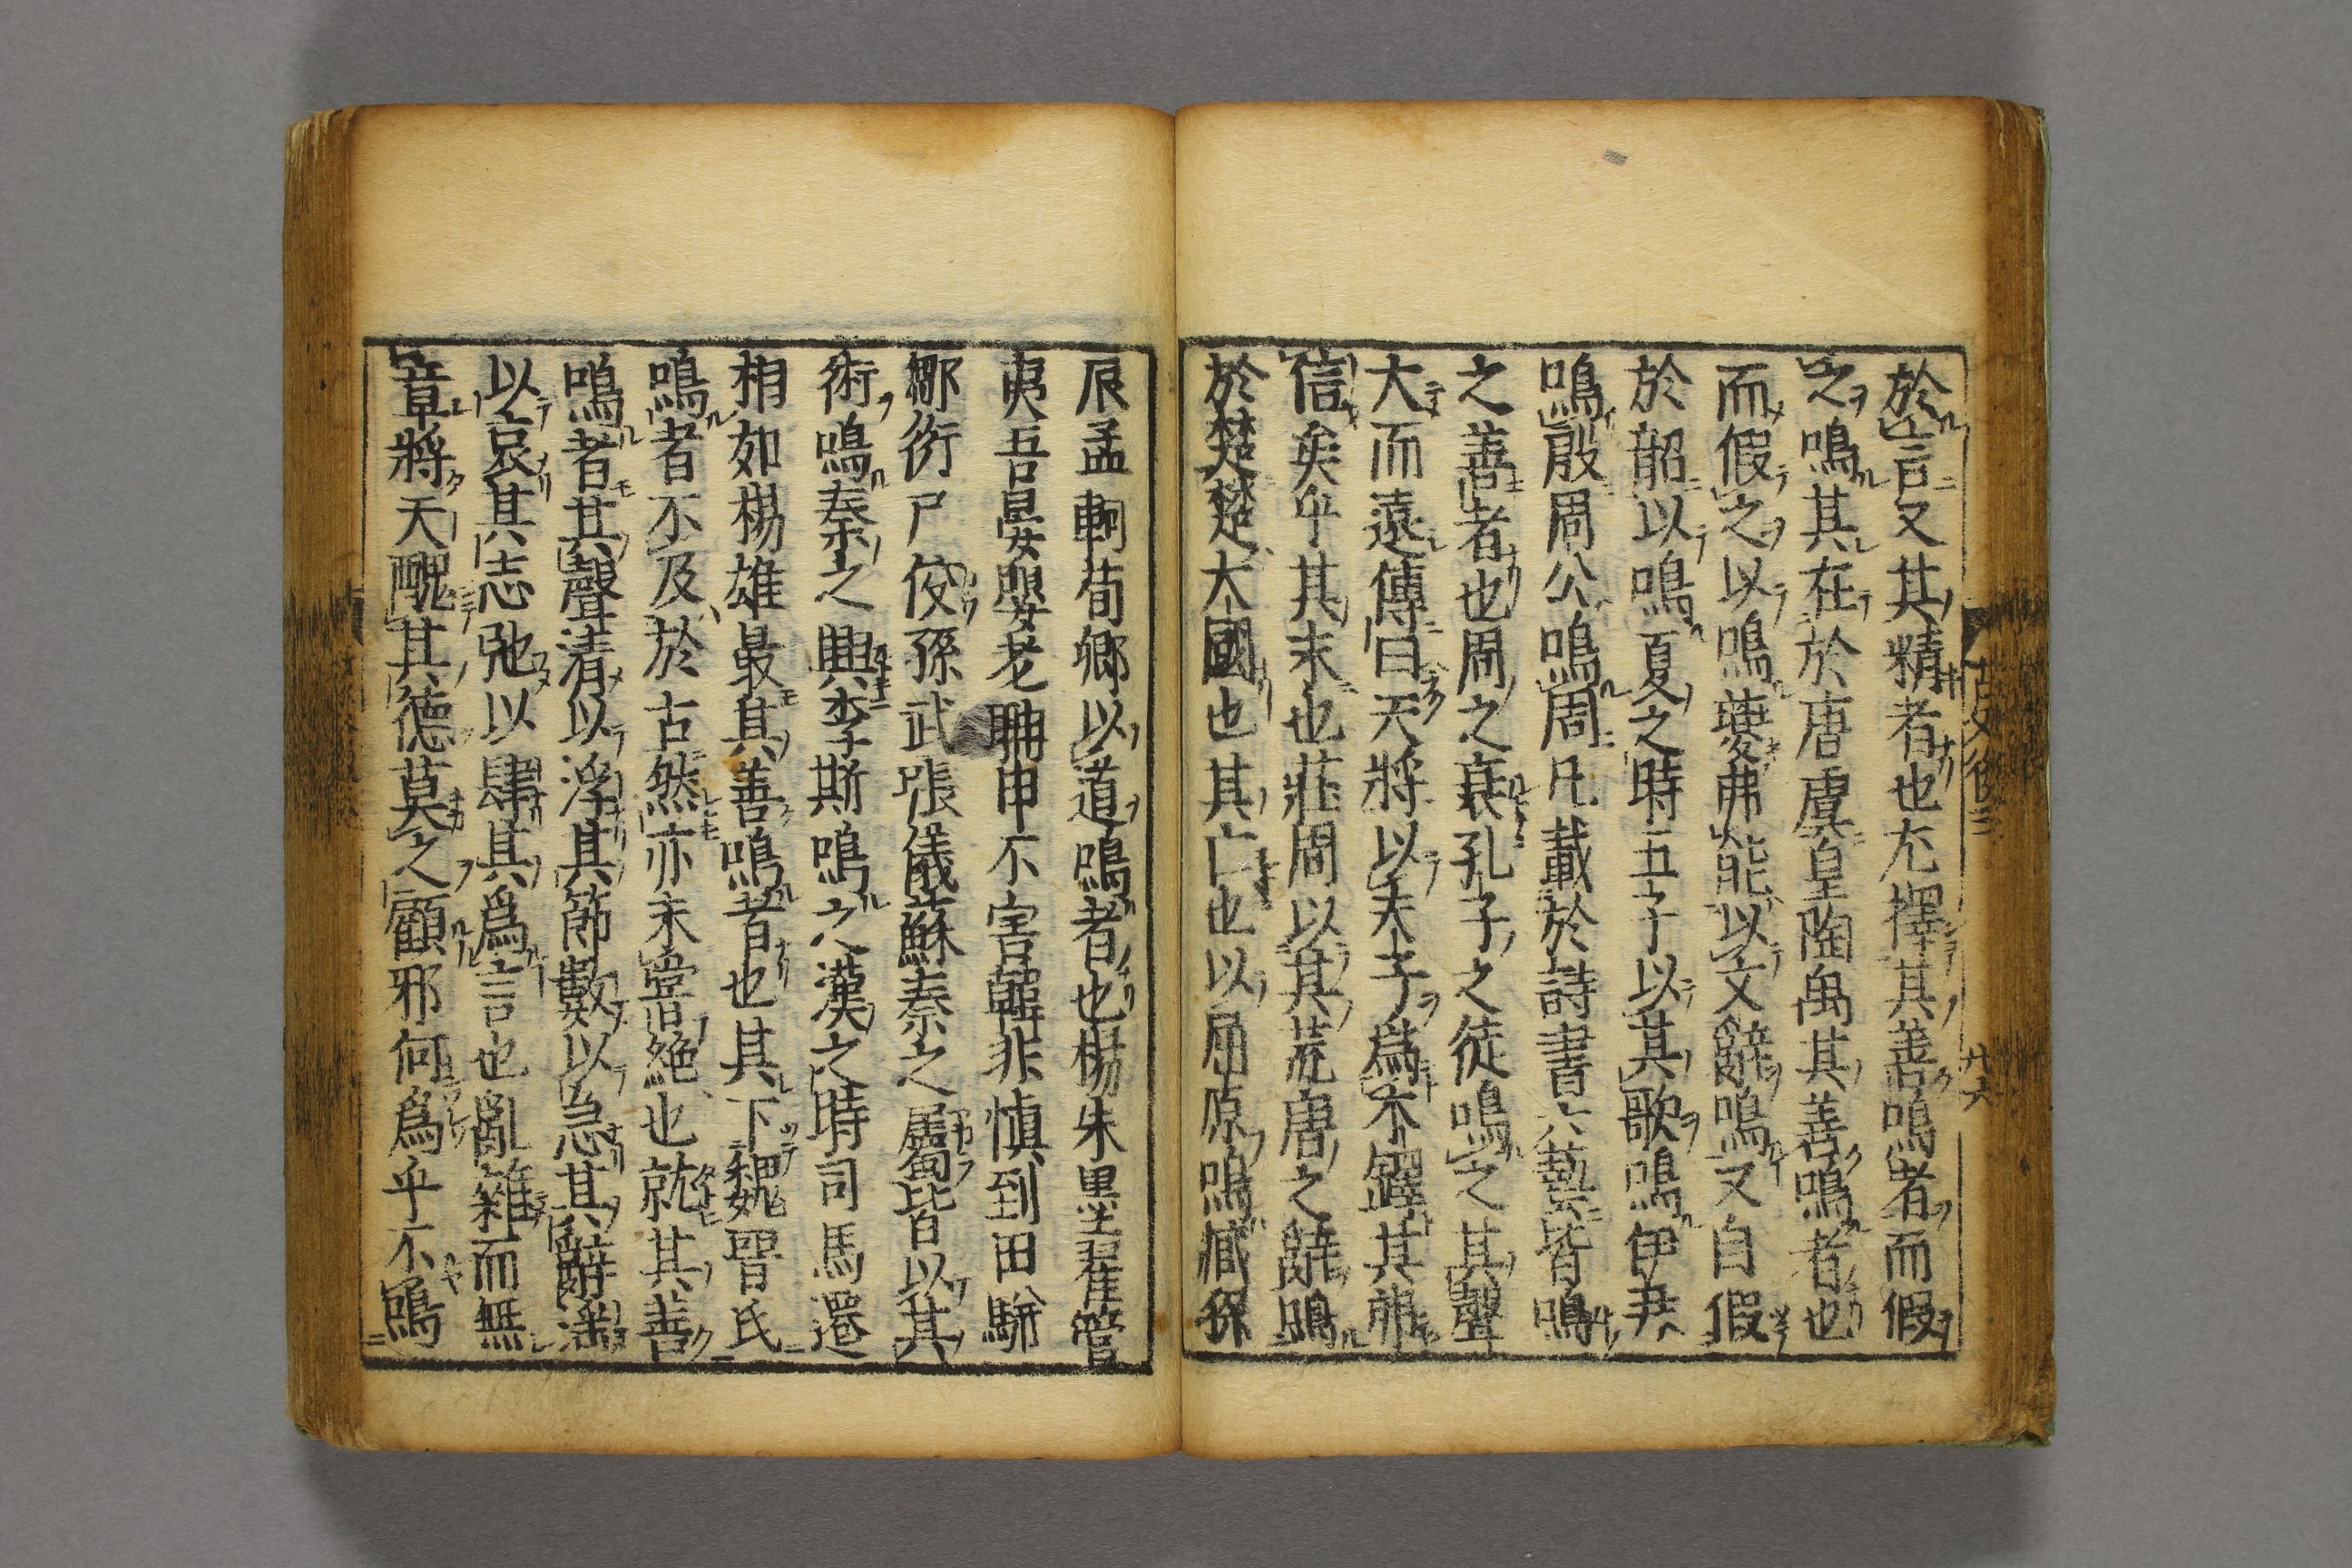 於言又其精者也尤擇其善鳴者而假
之鳴其在於唐虞皇陶禹其善鳴者也
而假之以鳴夔弗能以文辭鳴又自假
於韶以鳴夏之時五子以其歌鳴伊尹
鳴殷周公鳴周凡載於詩書六藝皆鳴
之善者也周之衰孔子之徒鳴之其聲
大而遠傳曰天將以夫子爲木鐸其弗
信矣乎其末也莊周以其荒唐之辭鳴
於楚楚大國也其亡也以屈原鳴臧孫
辰孟軻荀卿以道鳴者也楊朱墨翟管
夷吾晏嬰老聃申不害韓非慎到田駢
鄒衍尸佼孫武張儀蘇秦之屬皆以其
術鳴秦之興李斯鳴之漢之時司馬遷
相如楊雄最其善鳴者也其下魏晉氏
鳴者不及於古然亦未嘗絶也就其善
鳴者其聲清以浮其節數以急其辭滛
以哀其志弛以肆其爲言也亂雜而無
章將天醜其德莫之顧邪何爲乎不鳴
古文後三
廿六